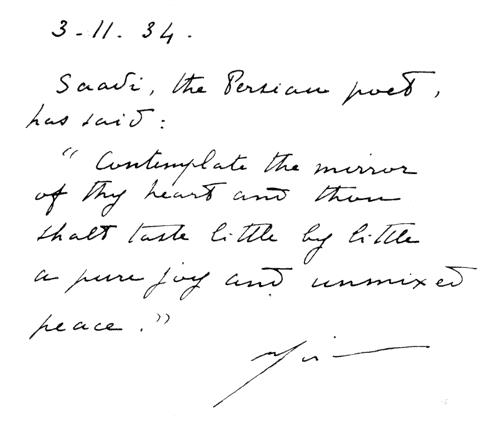 3-11.34.
Saadi, the Persian poet,
has said:
"Contemplate the mirror
of thy heart and thou
shalt taste little by little
a pure joy and unmixed
peace."